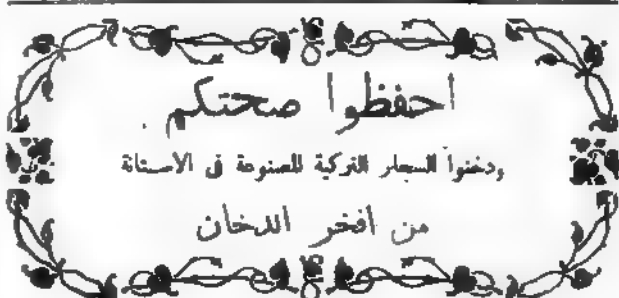 احفظوا صحتكم .
ودخنوا السجاير التركية المصنوعة في الاستانة
من افخر الدخان